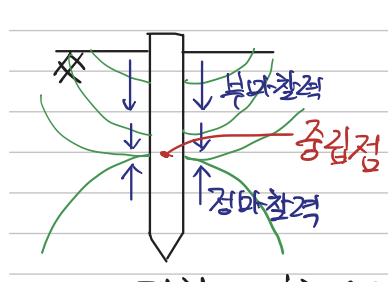 부마찰력
중립점
정마찰력